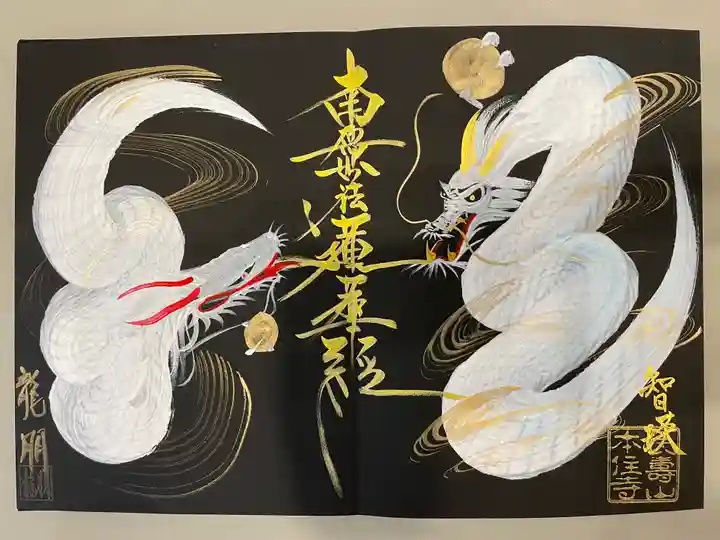 智
壽山
本住寺
南無妙法蓮華経
龍朋